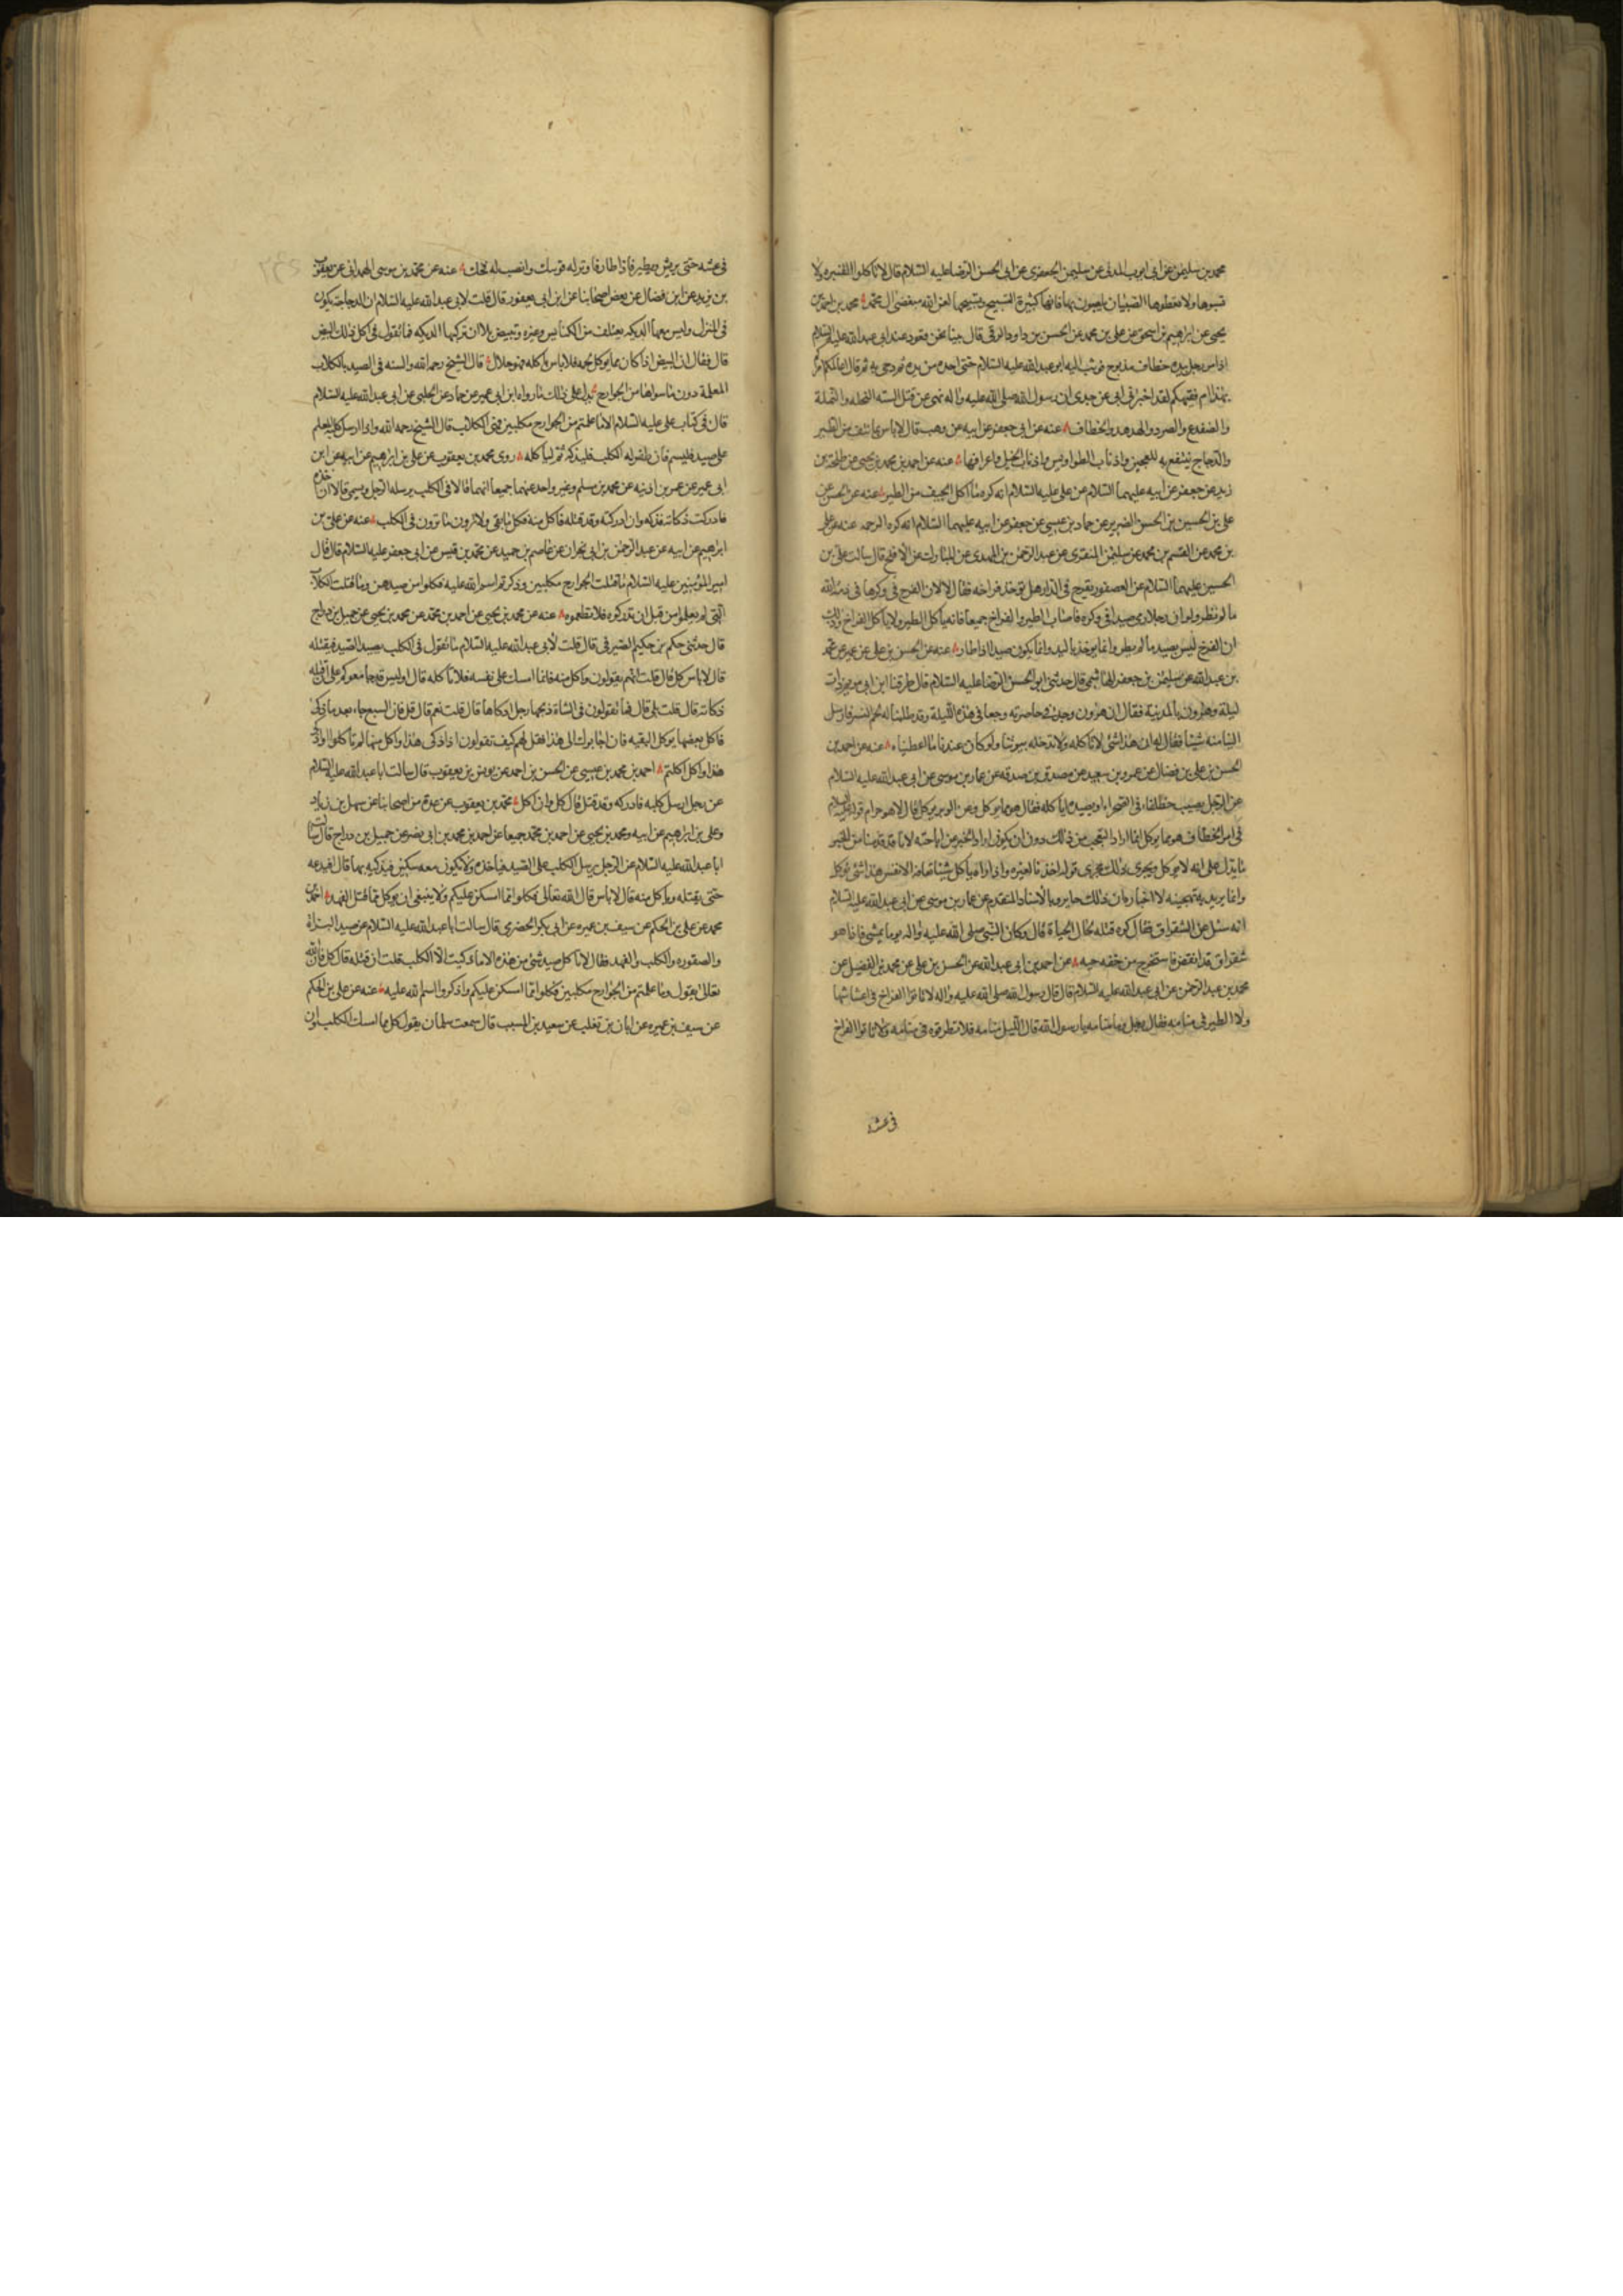 محمد بن سليمن عن ابى ايوب المدنى عن سليمن الجعفرى عن ابى الحسن الرضا عليه السلام قال لا تاكلوا القنبره ولا
تسبوها ولا تعطوها الصبيان يلعبون بها فانها كثيرة التسبيح وتسبيحها لعن الله مبغضى ال محمد محمد بن احمد بن
يحيى عن ابراهيم بن اسحق عن على بن محمد عن الحسن بن داود الرقى قال بينا نحن قعود عند ابى عبد الله عليه السلام
اذ مر رجل بيده خطاف مذبوح فوثب اليه ابو عبد الله عليه السلام حتى اخذه من يده ثم دحى به ثم قال اعالمكم امركم
بهذا ام فقيهكم لقد اخبرنى ابى عن جدى ان رسول الله صلى الله عليه واله نهى عن قتل الستة النحله والنملة
والضفدع والصرد والهدهد والخطاف عنه عن ابى جعفر عن ابيه عن وهب قال لا باس بما نتف من الطير
والدجاج ينتفع به للعجين واذناب الطواويس واذناب الخيل واعرافها عنه عن احمد بن محمد بن يحيى عن طلحة بن
زيد عن جعفر عن ابيه عليهما السلام عن على عليه السلام انه كره ما اكل الجيف من الطير عنه عن الحسن عن
على بن الحسين بن الحسن الضرير عن حماد بن عيسى عن جعفر عن ابيه عليهما السلام انه كره الرخمه عنه عن على
بن محمد عن القسم بن محمد عن سليمن المنقرى عن عبد الرحمن بن المهدى عن المبارك عن الافلح قال سالت على بن
الحسين عليهما السلام عن العصفور يفرخ فى الدار هل توخذ فراخه فقال لا لان الفرخ فى وكرها فى ذمة الله
ما لم تطر ولو ان رجلا رمى صيدا فى وكره فاصاب الطير والفراخ جميعا فانه ياكل الطير ولا ياكل الفراخ وذلك
ان الفرخ ليس بصيد ما لم يطر وانما يوخذ باليد وانما يكون صيدا اذا طار عنه عن الحسن بن على عن عمر عن محمد
بن عبد الله عن سليمن بن جعفر الهاشمى قال حدثنى ابو الحسن الرضا عليه السلام قال طرقنا ابن ابى مريم ذات
ليلة وهرون بالمدينة فقال ان هرون وجد فى خاصرته وجعا فى هذه الليلة وقد طلبنا له لحم النسر فارسل
الينا منه شيئا فقال له ان هذا شئ لا ناكله ولا ندخله بيوتنا ولو كان عندنا ما اعطيناه عنه عن احمد بن
الحسن بن على بن فضال عن عمرو بن سعيد عن مصدق بن صدقه عن عمار بن موسى عن ابى عبد الله عليه السلام
عن الرجل يصيب خطافا فى الصحراء او يصيده اياكله فقال هو مما يوكل وعن الوبر يوكل قال لا هو حرام قوله عليه السلام
فى امر الخطاف هو مما يوكل انما اراد التعجب من ذلك دون ان يكون اراد الخبر عن اباحته لانا قد قدمنا من الخبر
ما يدل على انه لا يوكل ويجرى ذلك مجرى قول احدنا لغيره واذا راه ياكل شيئا تعافه الانفس هذا شئ يوكل
وانما يريد به تهجينه لا اخباره ان ذلك جايز وبالاسناد المتقدم عن عمار بن موسى عن ابى عبد الله عليه السلام
انه سئل عن الشقراق فقال كره قتله لحال الحياة قال وكان النبى صلى الله عليه واله يوما يمشى فاذا هو
شقراق قد انقض فاستخرج من خفه حيه عن احمد بن ابى عبد الله عن الحسن بن على عن محمد بن الفضيل عن
محمد بن عبد الرحمن عن ابى عبد الله عليه السلام قال قال رسول الله صلى الله عليه واله لا تاتوا الفراخ فى اعشاشها
ولا الطير فى منامه فقال رجل وما منامه يا رسول الله قال الليل منامه فلا تطرقوه فى منامه ولا تاتوا الفراخ
فى عشه
فى عشه حتى يريش ويطير فاذا طار فاوتر له قوسك وانصب له فخك عنه عن محمد بن موسى الهمدانى عن يعقوب
بن يزيد عن ابن فضال عن بعض اصحابنا عن ابن ابى يعفور قال قلت لابى عبد الله عليه السلام ان الدجاجة يكون
فى المنزل وليس معها الديكه يعتلف من الكناس وغيره وتبيض بلا ان تركبها الديكه فما تقول فى اكل ذلك البيض
قال فقال ان البيض اذا كان مما يوكل لحمه فلا باس باكله فهو حلال قال الشيخ رحمه الله والسنه فى الصيد بالكلاب
المعلمة دون ما سواها من الجوارح يدل على ذلك ما رواه ابن ابى عمير عن حماد عن الحلبى عن ابى عبد الله عليه السلام
قال فى كتاب على عليه السلام الا ما علمتم من الجوارح مكلبين فهى الكلاب قال الشيخ رحمه الله واذا ارسل كلبه المعلم
على صيد فليسم فان ظفر له الكلب فليذكه ثم لياكله روى محمد بن يعقوب عن على بن ابراهيم عن ابيه عن ابن
ابى عمير عن عمر بن اذينه عن محمد بن مسلم وغير واحد عنهما جميعا انهما قالا فى الكلب يرسله الرجل ويسمى قالا ان اخذه
فادركت ذكاته فذكه وان ادركته وقد قتله فاكل منه فكل ما بقى ولا ترون ما ترون فى الكلب عنه عن على بن
ابراهيم عن ابيه عن عبد الرحمن بن ابى نجران عن عاصم بن حميد عن محمد بن قيس عن ابى جعفر عليه السلام قال قال
امير المؤمنين عليه السلام ما قتلت الجوارح مكلبين وذكرتم اسم الله عليه فكلوا من صيدهن وما قتلت الكلاب
التى لم يعلموا من قبل ان تدركوه فلا تطعموه عنه عن محمد بن يحيى عن احمد بن محمد عن محمد بن يحيى عن جميل بن دراج
قال حدثنى حكم بن حكيم الصيرفى قال قلت لابى عبد الله عليه السلام ما تقول فى الكلب يصيد الصيد فيقتله
قال لا باس كل قال قلت انهم يقولون واكل منه فانما امسك على نفسه فلا تاكله قال اوليس قد جامعوكم على ان قتله
ذكاته قال قلت بلى قال فما تقولون فى الشاة ذبحها رجل اذكاها قال قلت نعم قال قل فان السبع جاء بعد ما ذكى
فاكل بعضها يوكل البقيه فان اجابوك الى هذا فقل لهم كيف تقولون اذا ذكى هذا واكل منها لم تاكلوا واذا ذكى
هذا واكل اكلتم احمد بن محمد بن عيسى عن الحسن بن احمد عن يونس بن يعقوب قال سالت ابا عبد الله عليه السلام
عن رجل ارسل كلبه فادركه وقد قتل قال كل وان اكل محمد بن يعقوب عن عدة من اصحابنا عن سهل بن زياد
وعلى بن ابراهيم عن ابيه ومحمد بن يحيى عن احمد بن محمد جميعا عن احمد بن محمد بن ابى نصر عن جميل بن دراج قال سالت
ابا عبد الله عليه السلام عن الرجل يرسل الكلب على الصيد فياخذه ولا يكون معه سكين فيذكيه بها قال افيدعه
حتى يقتله وياكل منه قال لا باس قال الله تعالى فكلوا مما امسكن عليكم ولا ينبغى ان يوكل مما قتل الفهد احمد بن
محمد عن على بن الحكم عن سيف بن عميره عن ابى بكر الحضرمى قال سالت ابا عبد الله عليه السلام عن صيد البزاة
والصقوره والكلب والفهد فقال لا تاكل صيد شئ من هذه الا ما ذكيت الا الكلب قلت ان قتله قال كل فان الله
تعالى يقول وما علمتم من الجوارح مكلبين فكلوا مما امسكن عليكم واذكروا اسم الله عليه عنه عن على بن الحكم
عن سيف بن عميره عن ابان بن تغلب عن سعيد بن المسيب قال سمعت سلمان يقول كل مما امسك الكلب وان